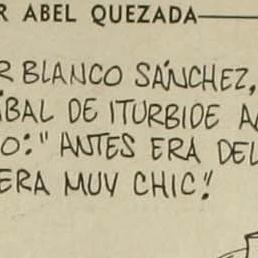 R ABEL QUEZADA
R BLANCO SÁNCHEZ,
ÍBAL DE ITURBIDE A
O: " ANTES ERA DEL
ERA MUY CHIC".